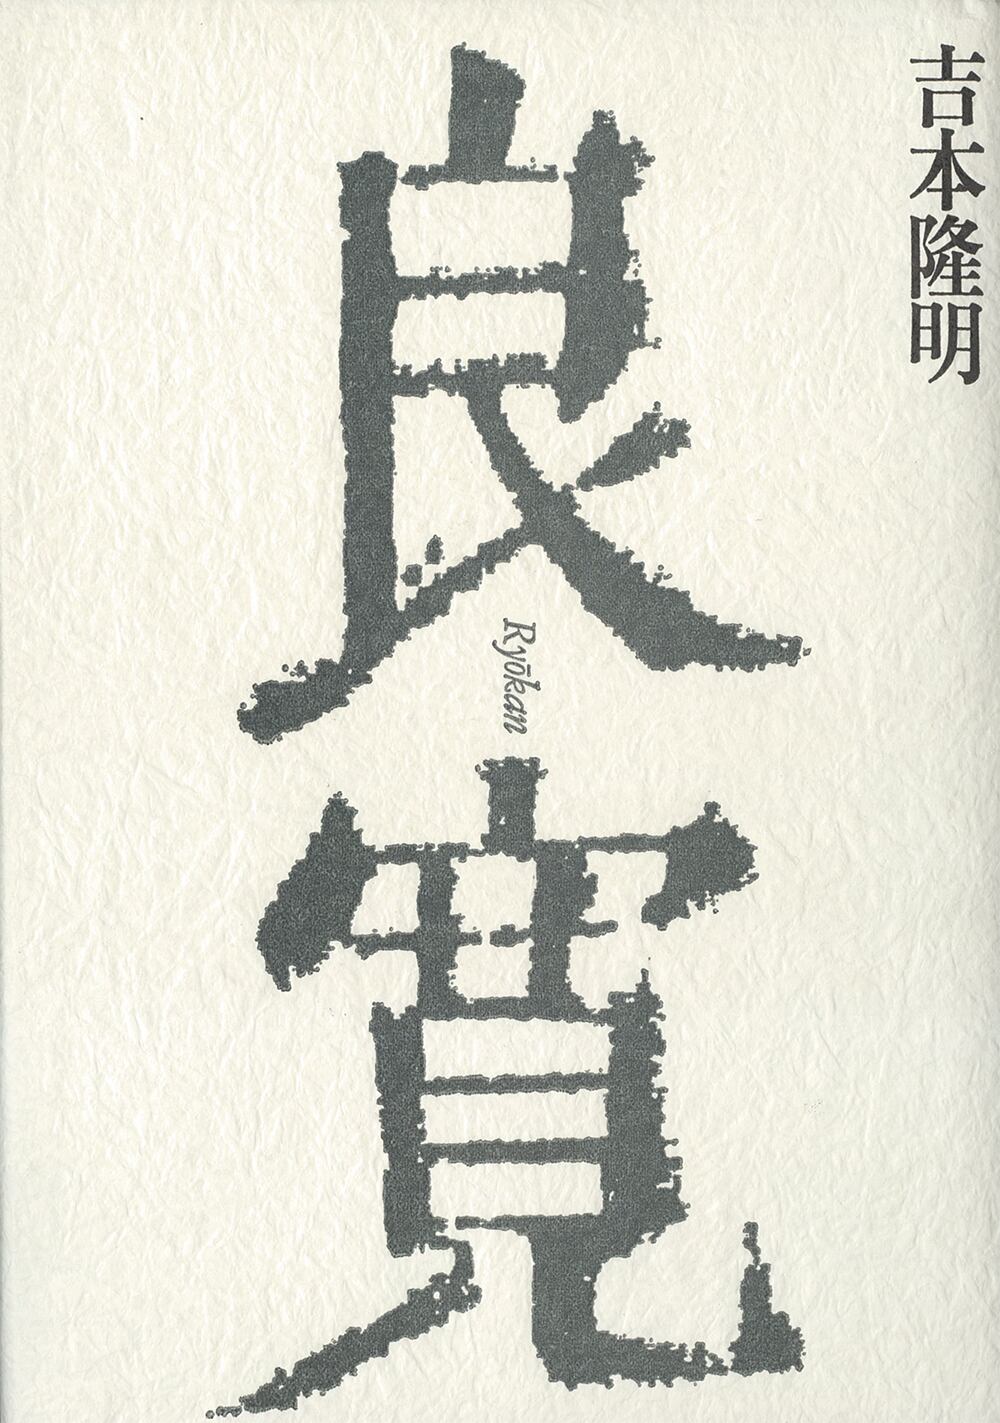 吉本隆明
良寛
Ryōkan